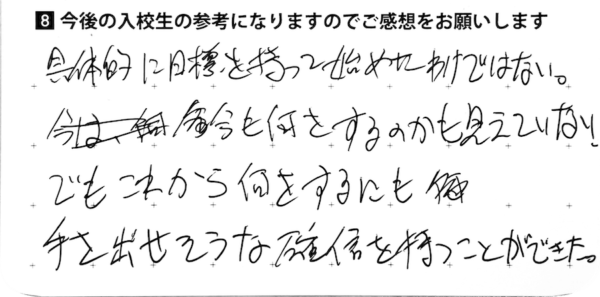 8 今後の入校生の参考になりますのでご感想をお願いします
具体的に目標を持って始めたわけではない。
今も何をするのかも見えていない!
でもこれから何をするにも
手を出せそうな確信を持つことができた。